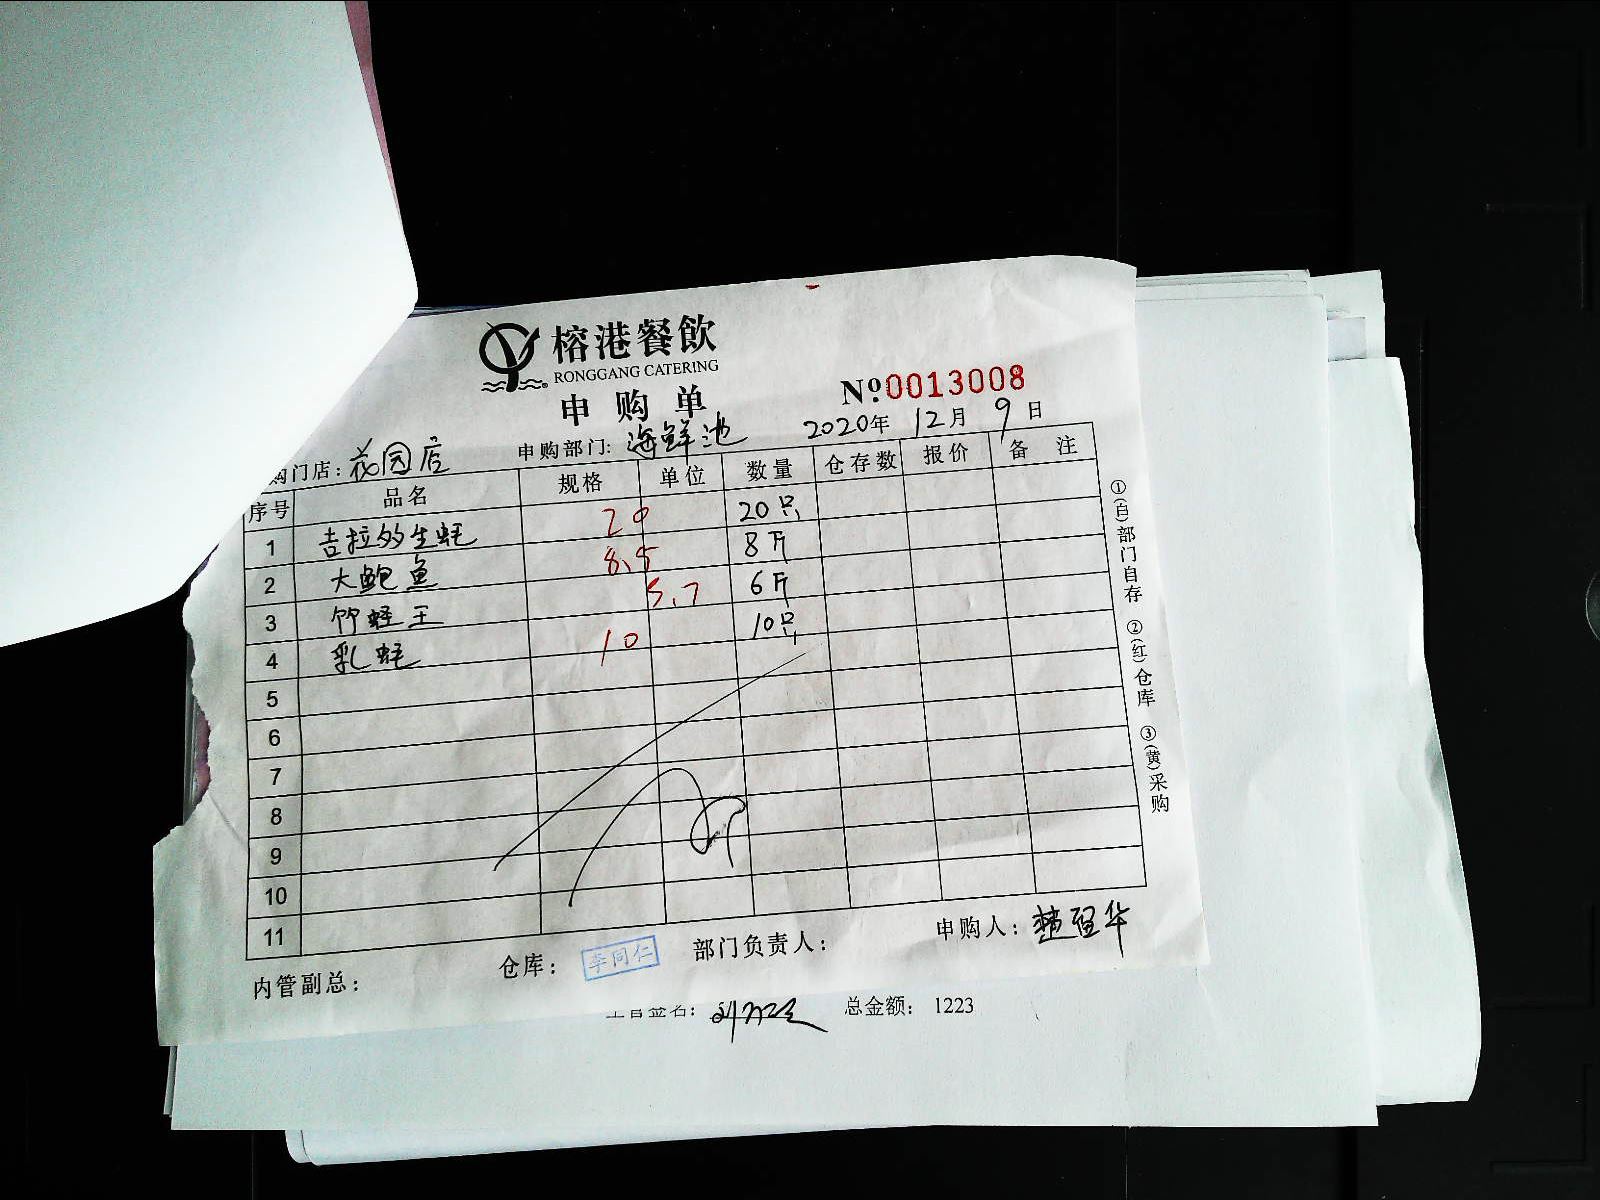 榕港餐飲
RONGGANG CATERING
申购单
№0013008
2020年 12月 9日
购门店: 花园店 申购部门: 海鲜池
序号 品名 规格 单位 数量 仓存数 报价 备注
1 吉拉多生蚝 20 20只
2 大鲍鱼 8.5 8斤
3 竹蛏王 5.7 6斤
4 乳蚝 10 10只
5
6
7
8
9
10
11
①(白)部门自存 ②(红)仓库 ③(黄)采购
内管副总: 仓库: 李同仁 部门负责人: 申购人: 楚留华
签名: 总金额: 1223